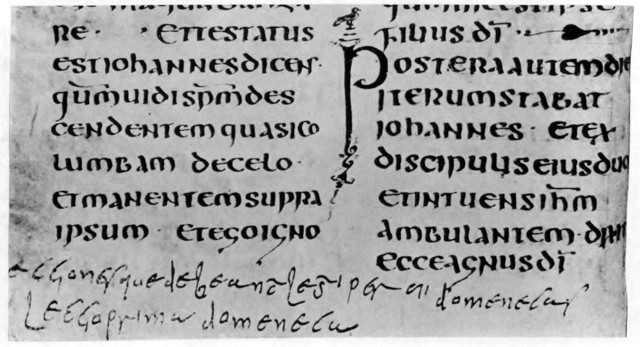 RE · · ETTESTATUS
ESTIOHANNESDICENS·
QUM̄UIDISPM̄DES
CENDENTEMQUASICO
LUMBAM DECELO·
ETMANENTEMSUPRA
IPSUM · ETEGOIGNO
FILIUSDĪ
POSTERAAUTEMDIE
ITERUMSTABAT
IOHANNES · ETEX
DISCIPULISEIUSDUO
ETINTUENSIHM̄
AMBULANTEM·
ECCEAGNUSDĪ
que debeant legi per domenecas
prima domeneca